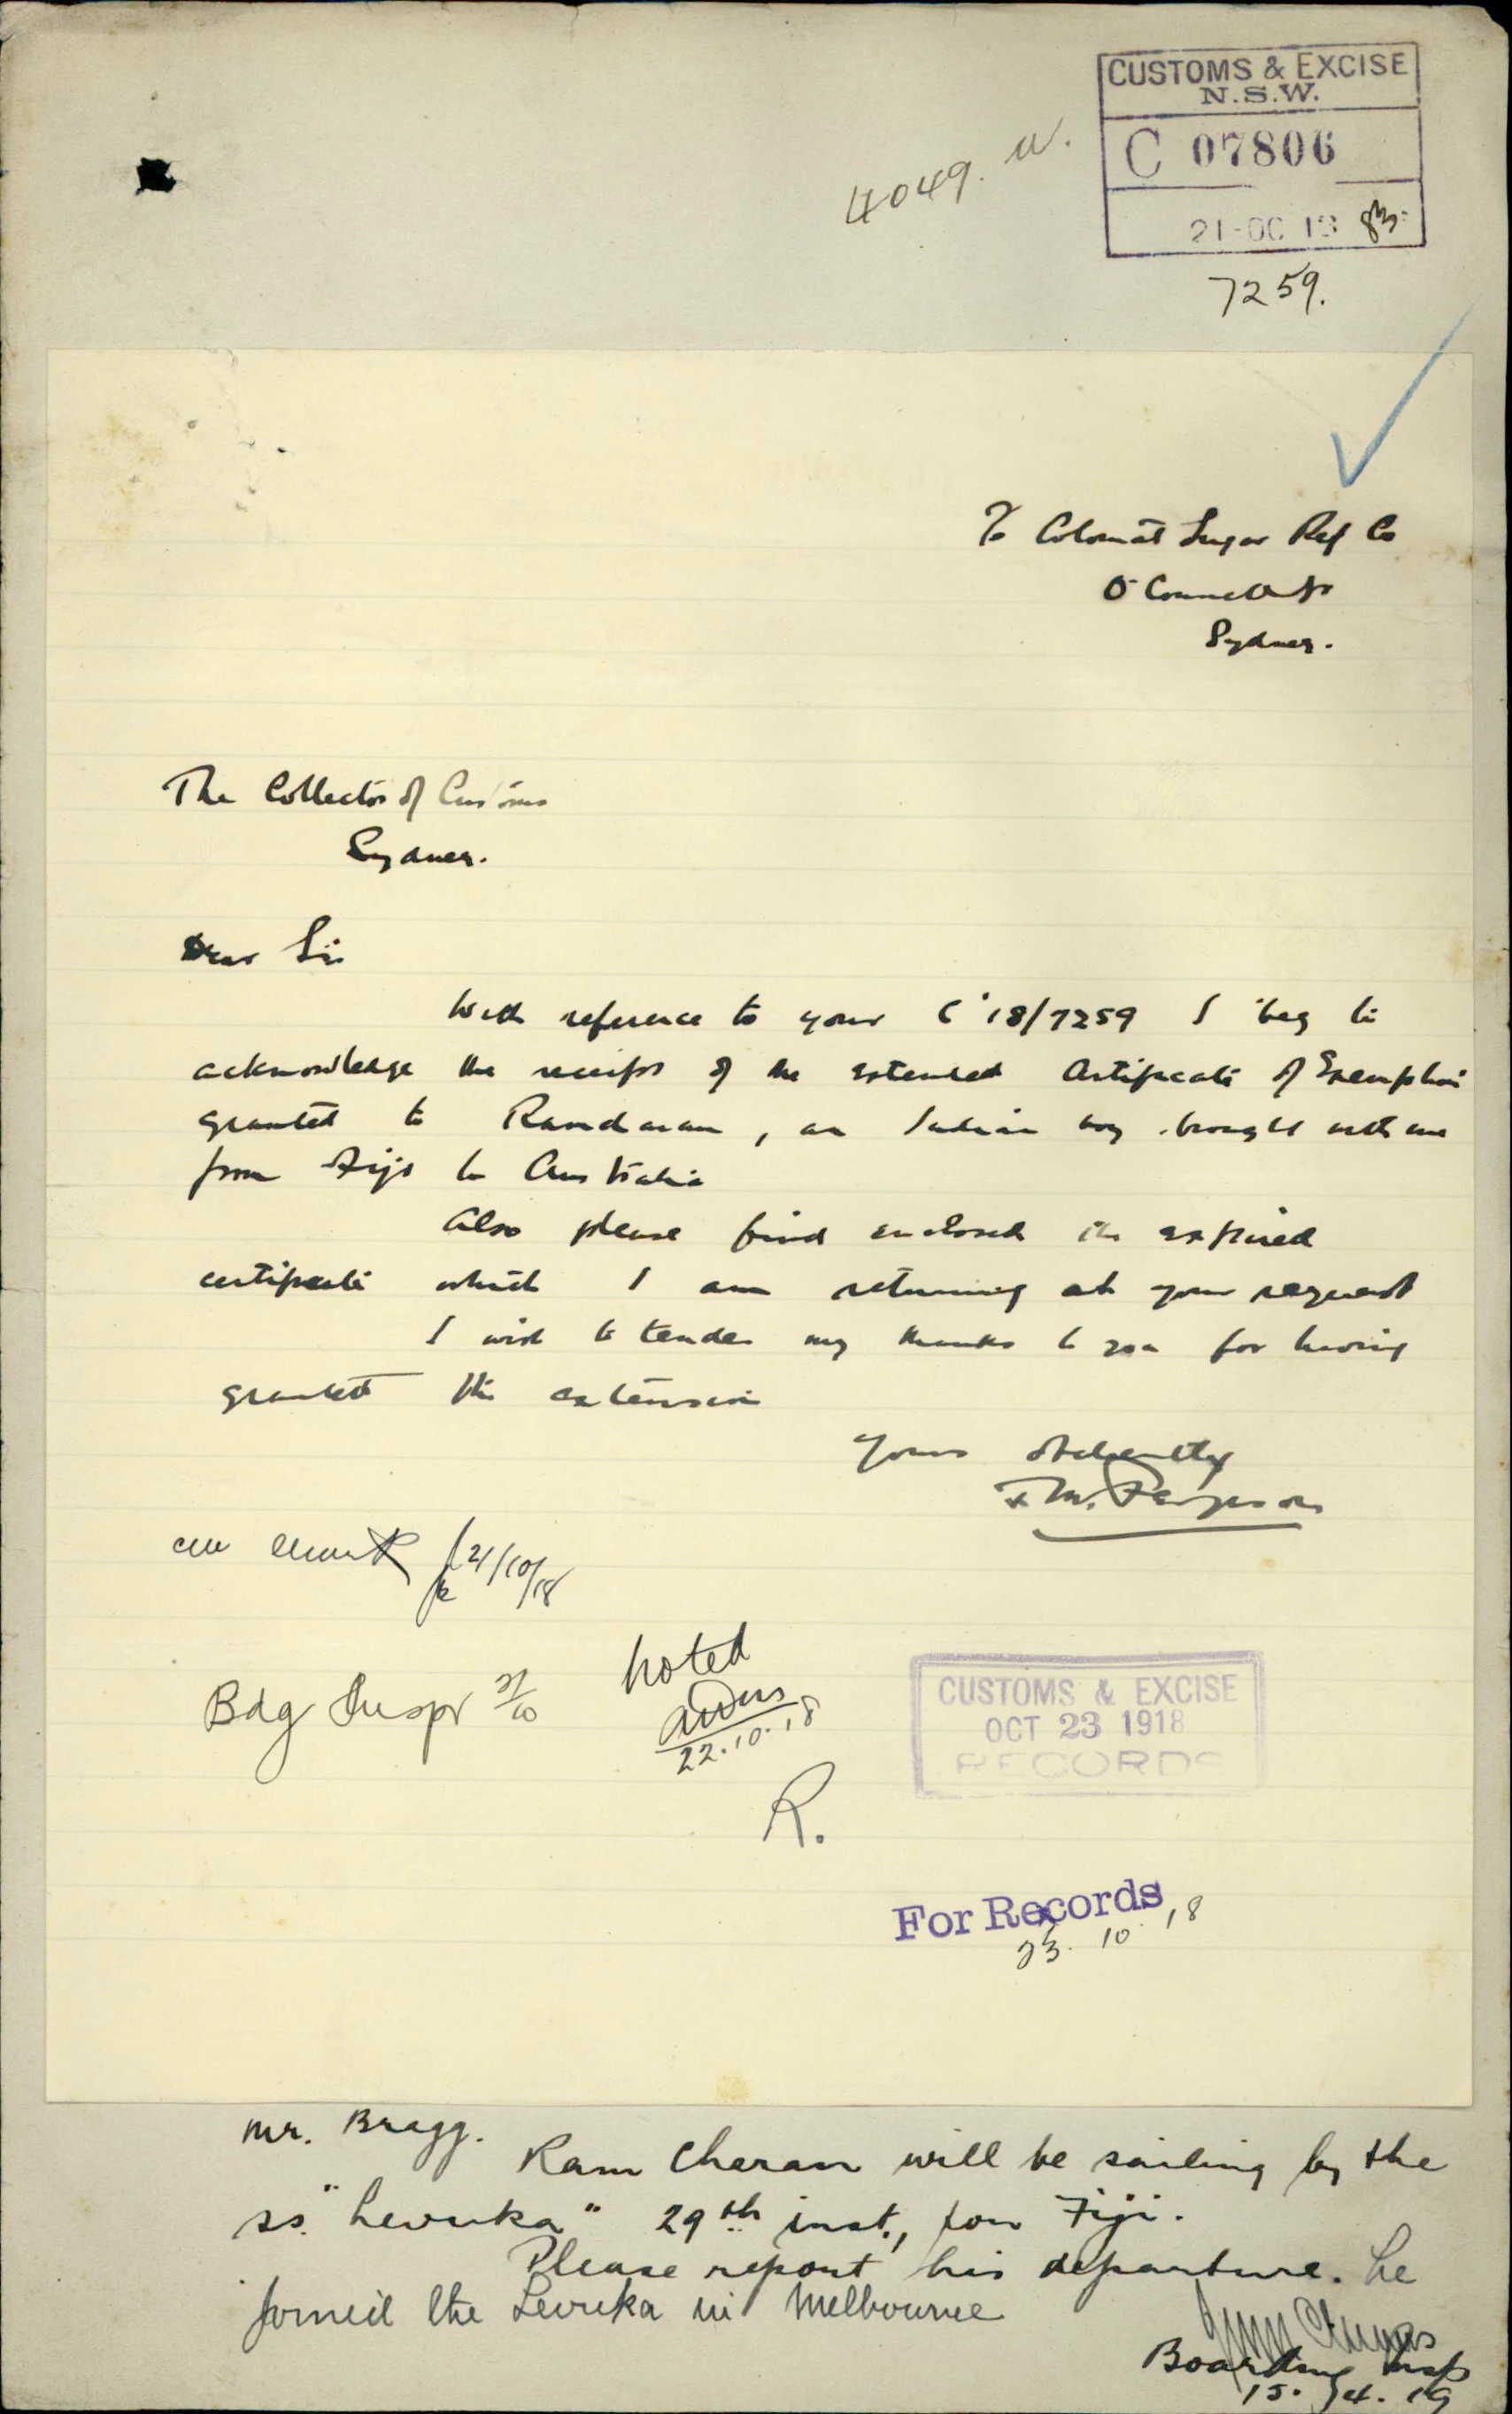 CUSTOMS & EXCISE
N.S.W.
C 07806
21-OC 18
4049. W.
7259.
To Colonial Sugar Ref Co
O'Connell St
Sydney.
The Collector of Customs
Sydney.
Dear Sir
With reference to your C 18/7259 I beg to
acknowledge the receipt of the extended Certificate of Exemption
granted to Ramcharan, an Indian boy brought with me
from Fiji to Australia
Also please find enclosed the expired
certificate which I am returning at your request
I wish to tender my thanks to you for having
granted this extension
Yours obediently
M. Ferguson
21/10/18
Bdg Inspr 21/10
Noted
22.10.18
R.
CUSTOMS & EXCISE
OCT 23 1918
RECORDS
For Records
23. 10. 18
Mr. Bragg.
Ram Charan will be sailing by the
ss. "Levuka" 29th inst., for Fiji.
Please report his departure. he
joined the Levuka in Melbourne
Boarding Insp
15. 4. 19